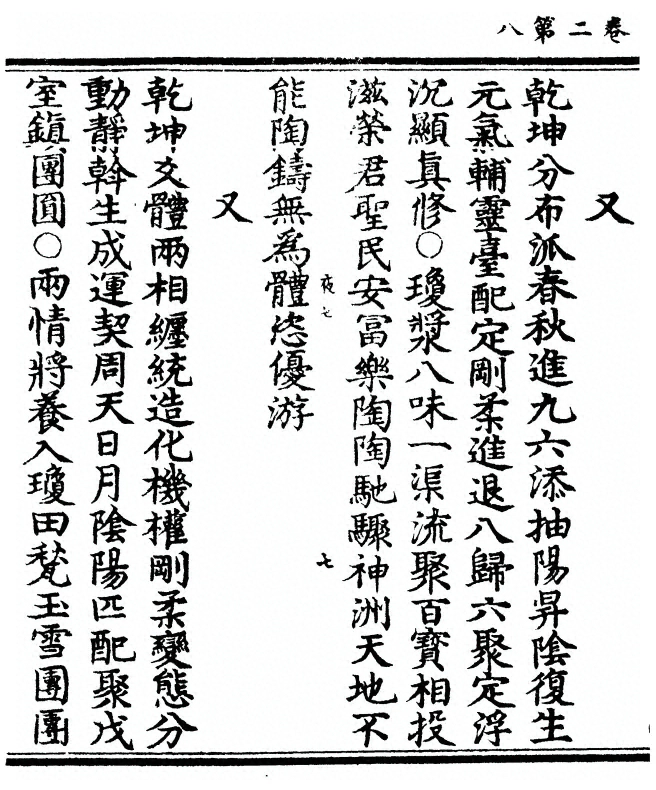 卷二第八
又
乾坤分布派春秋進九六添抽陽昇陰復生
元氣輔靈臺配定剛柔進退八歸六聚定浮
沉顯真修○瓊漿八味一渠流聚百寶相投
滋榮君聖民安富樂陶陶馳驟神洲天地不
夜七
七
能陶鑄無為體恣優游
又
乾坤交體兩相纏統造化機權剛柔變態分
動靜斡生成運契周天日月陰陽匹配聚戊
室鎮團圓○兩情將養入瓊田甃玉雪團團